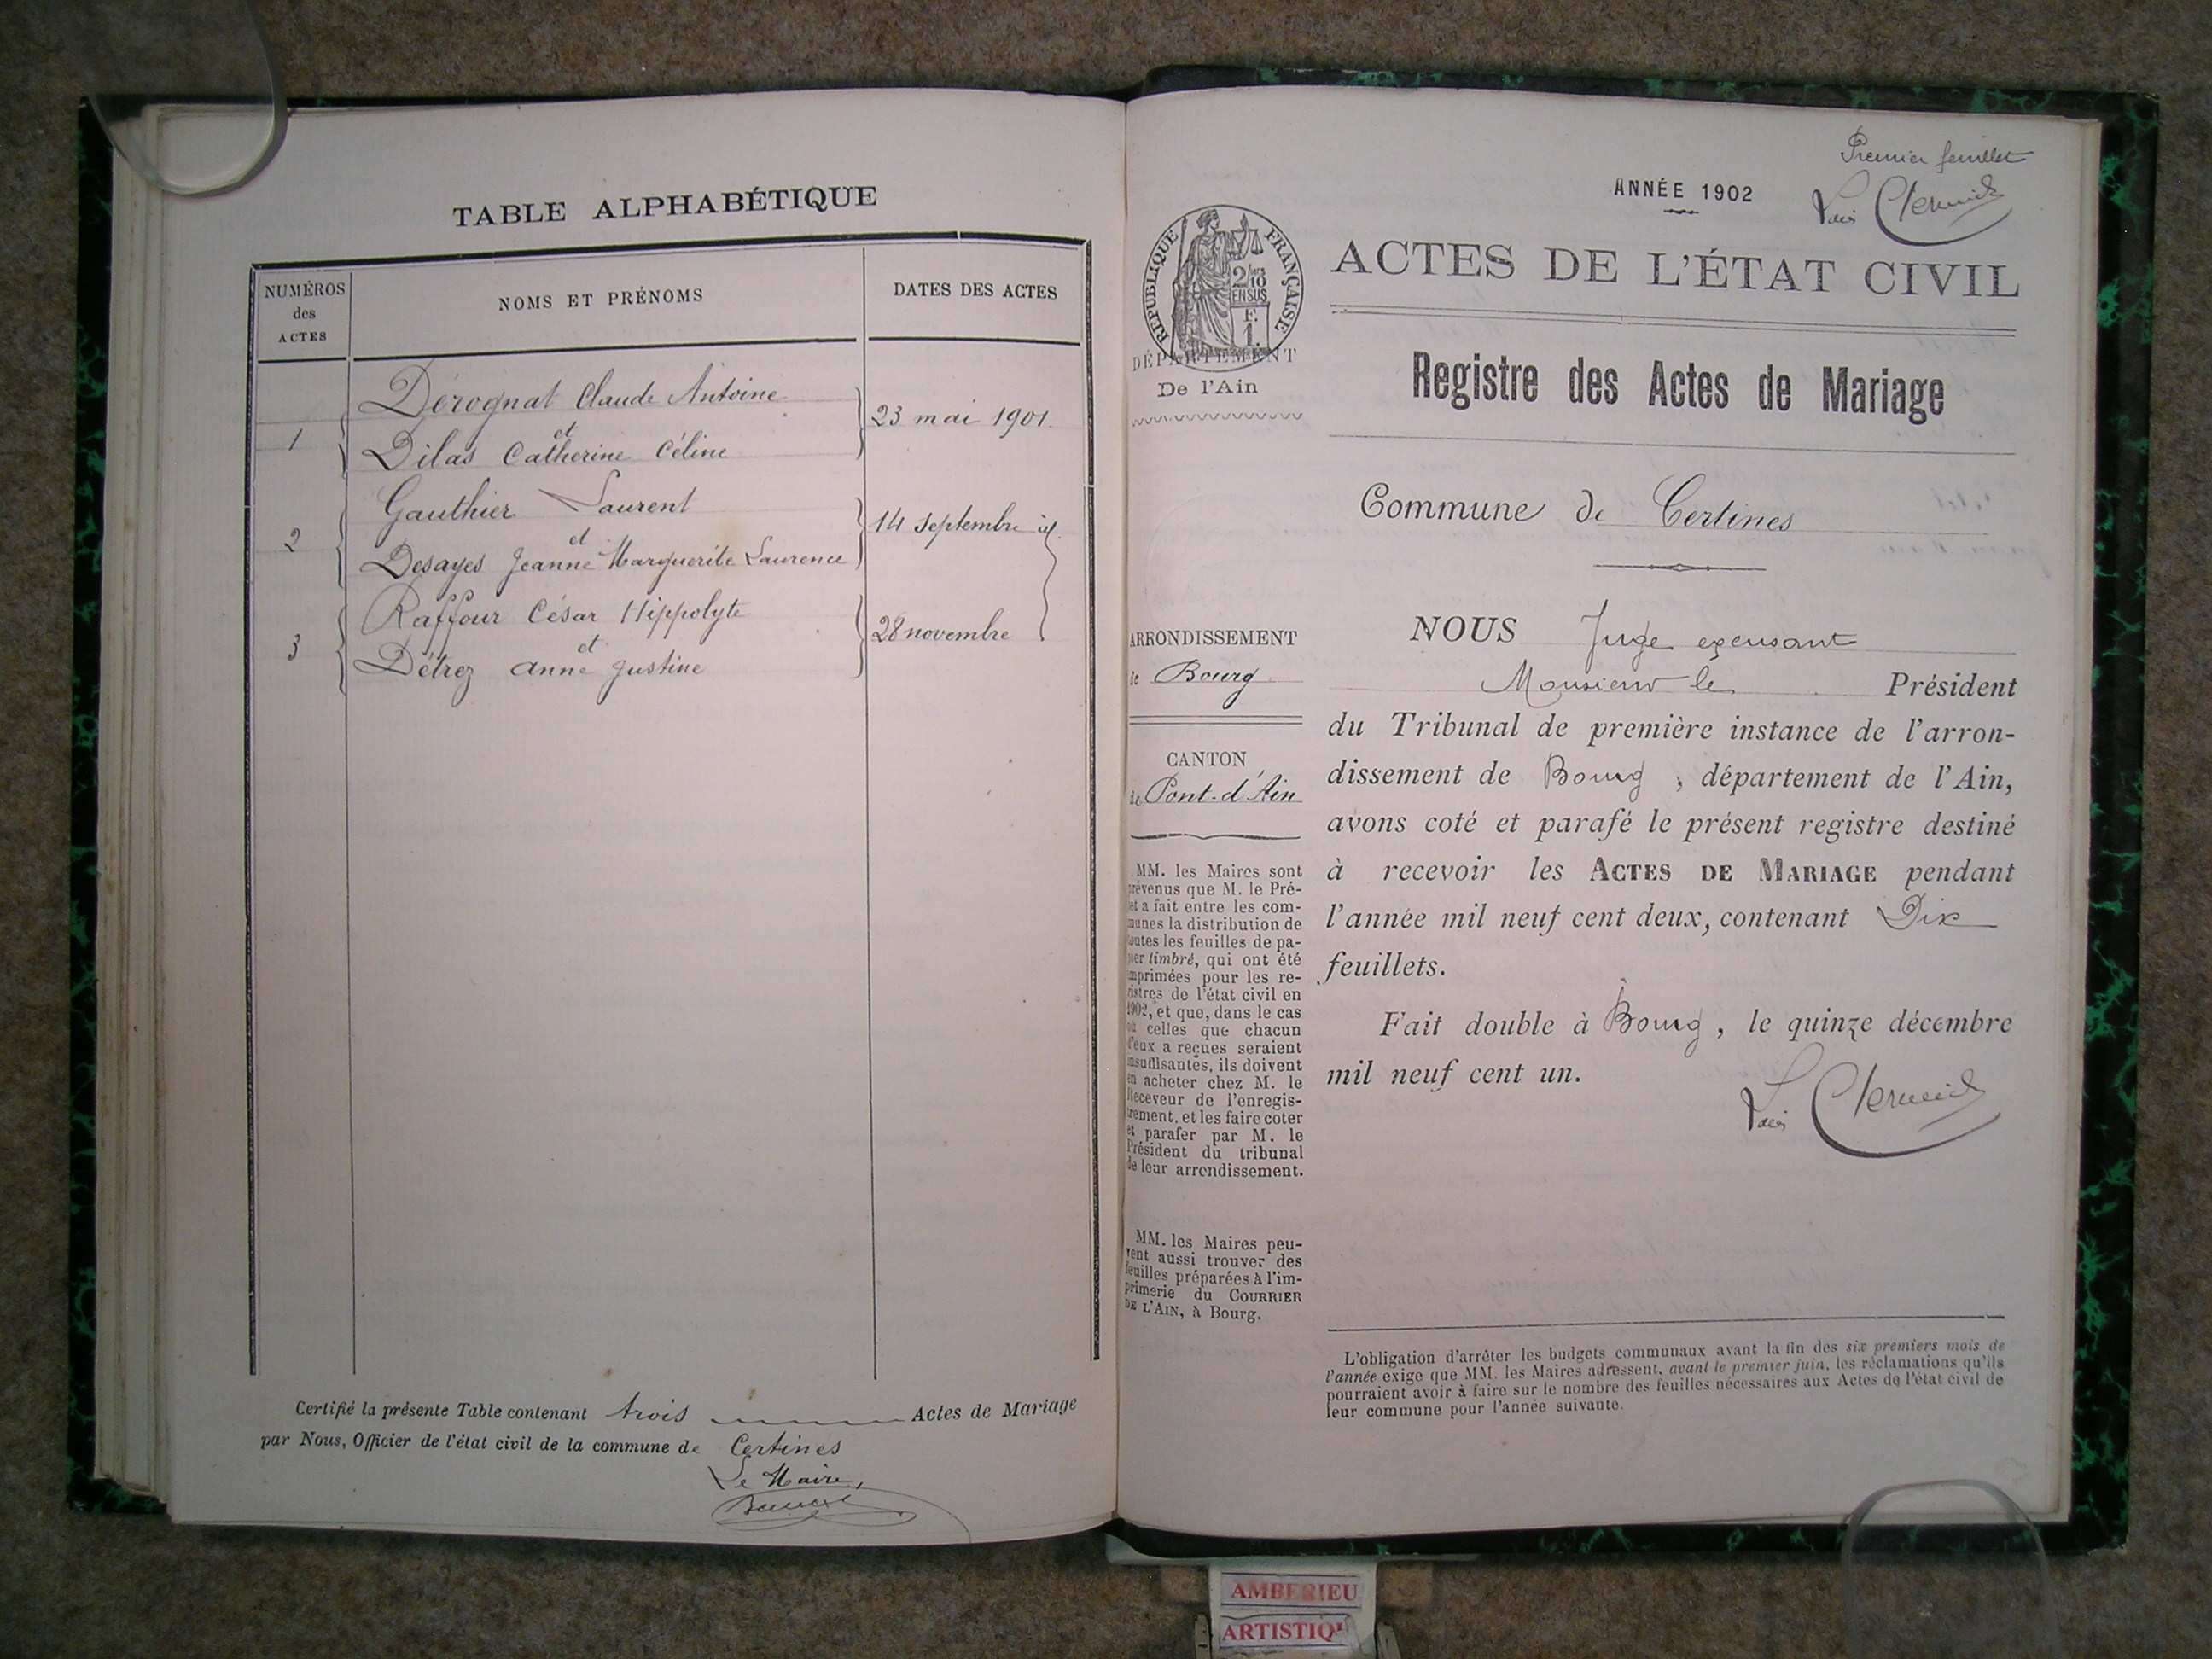 TABLE ALPHABÉTIQUE
NUMÉROS
des
ACTES
NOMS ET PRÉNOMS
DATES DES ACTES
1
Dérognat Claude Antoine
et
Dilas Catherine Céline
23 mai 1901.
2
Gauthier Laurent
et
Desayes Jeanne Marguerite Laurence
14 septembre id
3
Raffour César Hippolyte
et
Détrez Anne Justine
28 novembre
Certifié la présente Table contenant trois Actes de Mariage
par Nous, Officier de l'état civil de la commune de Certines
Le Maire,
Premier feuillet
ANNÉE 1902
RÉPUBLIQUE FRANÇAISE
2/10
EN SUS
F.
1.
DÉPARTEMENT
De l'Ain
ACTES DE L'ÉTAT CIVIL
Registre des Actes de Mariage
Commune de Certines
ARRONDISSEMENT
de Bourg
CANTON
de Pont-d'Ain
MM. les Maires sont
prévenus que M. le Pré-
fet a fait entre les com-
munes la distribution de
toutes les feuilles de pa-
pier timbré, qui ont été
imprimées pour les re-
gistres de l'état civil en
1902, et que, dans le cas
où celles que chacun
d'eux a reçues seraient
insuffisantes, ils doivent
en acheter chez M. le
Receveur de l'enregis-
trement, et les faire coter
et parafer par M. le
Président du tribunal
de leur arrondissement.
MM. les Maires peu-
vent aussi trouver des
feuilles préparées à l'im-
primerie du COURRIER
DE L'AIN, à Bourg.
NOUS Juge excusant
Monsieur le Président
du Tribunal de première instance de l'arron-
dissement de Bourg, département de l'Ain,
avons coté et parafé le présent registre destiné
à recevoir les ACTES DE MARIAGE pendant
l'année mil neuf cent deux, contenant Dix
feuillets.
Fait double à Bourg, le quinze décembre
mil neuf cent un.
L'obligation d'arrêter les budgets communaux avant la fin des six premiers mois de
l'année exige que MM. les Maires adressent, avant le premier juin, les réclamations qu'ils
pourraient avoir à faire sur le nombre des feuilles nécessaires aux Actes de l'état civil de
leur commune pour l'année suivante.
AMBERIEU
ARTISTIQU